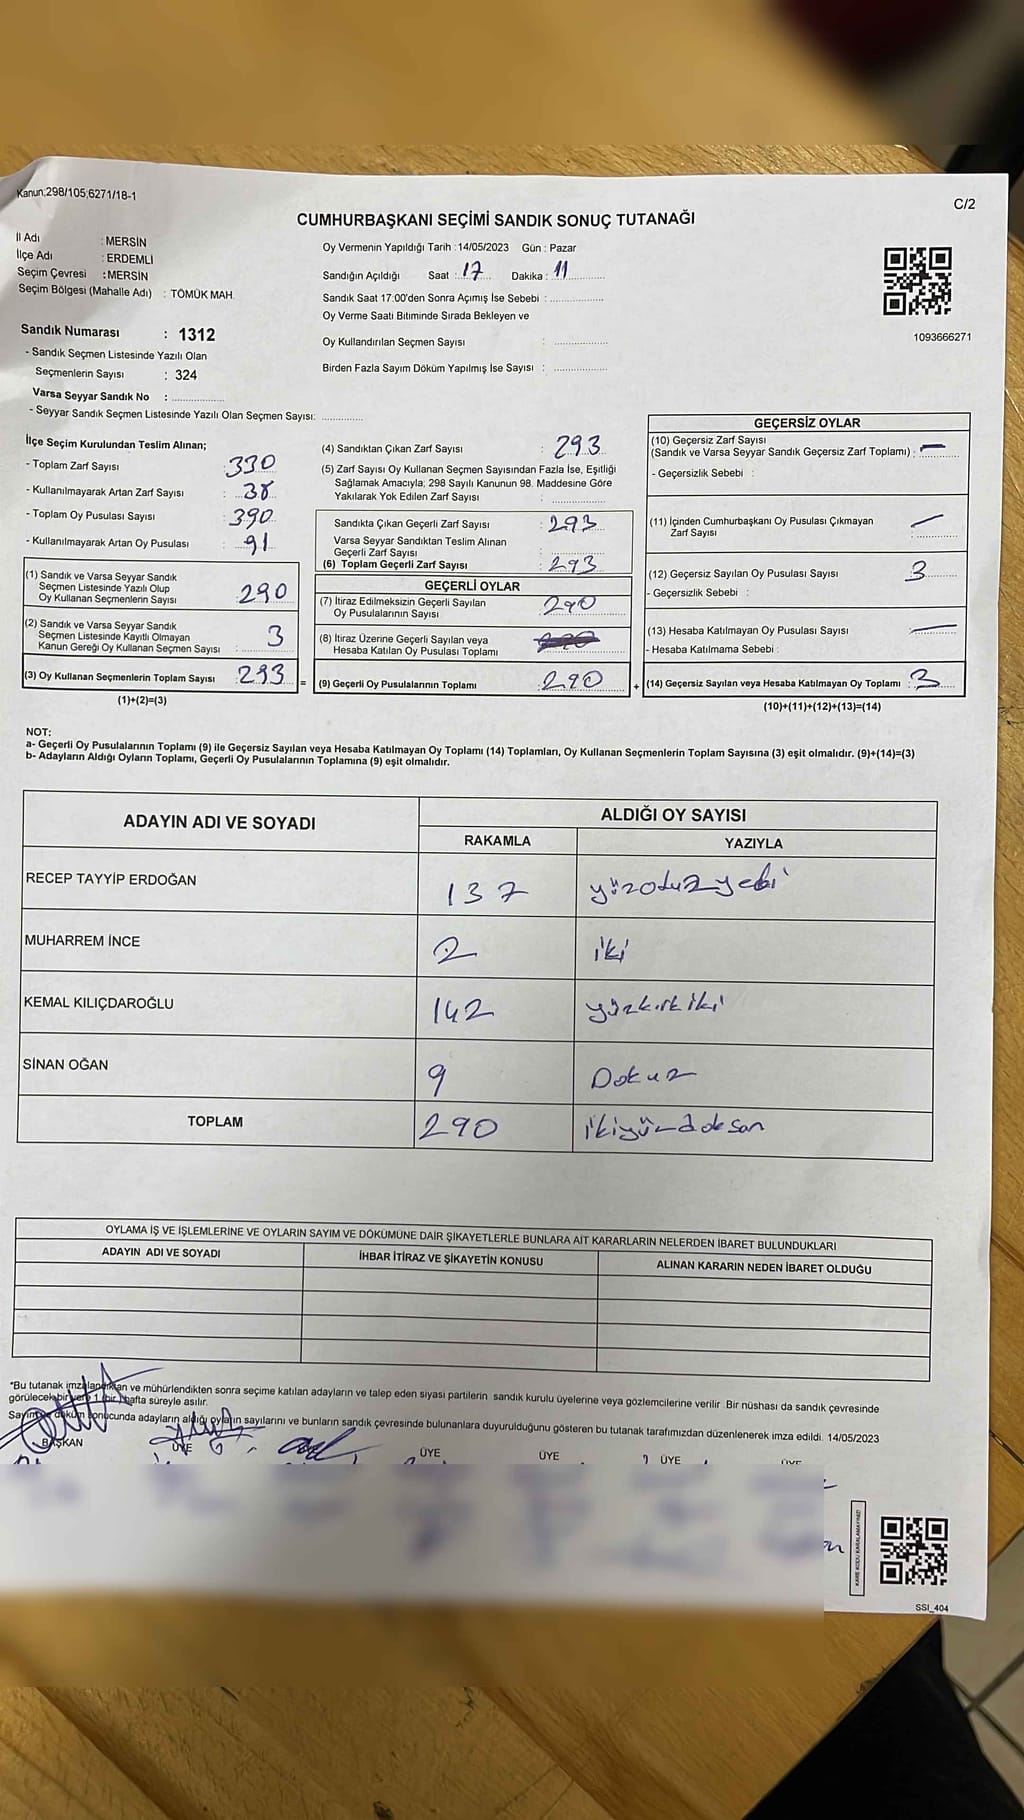 Kanun;298/105;6271/18-1
C/2
CUMHURBAŞKANI SEÇİMİ SANDIK SONUÇ TUTANAĞI
İl Adı : MERSİN
İlçe Adı : ERDEMLİ
Seçim Çevresi : MERSİN
Seçim Bölgesi (Mahalle Adı) : TÖMÜK MAH.
Oy Vermenin Yapıldığı Tarih :14/05/2023 Gün : Pazar
Sandığın Açıldığı Saat : 17 Dakika : 11
Sandık Saat 17:00'den Sonra Açımış İse Sebebi :
Oy Verme Saati Bitiminde Sırada Bekleyen ve
Oy Kullandırılan Seçmen Sayısı :
Birden Fazla Sayım Döküm Yapılmış İse Sayısı :
1093666271
Sandık Numarası : 1312
- Sandık Seçmen Listesinde Yazılı Olan
Seçmenlerin Sayısı : 324
Varsa Seyyar Sandık No :
- Seyyar Sandık Seçmen Listesinde Yazılı Olan Seçmen Sayısı:
İlçe Seçim Kurulundan Teslim Alınan;
- Toplam Zarf Sayısı : 330
- Kullanılmayarak Artan Zarf Sayısı : 38
- Toplam Oy Pusulası Sayısı : 390
- Kullanılmayarak Artan Oy Pusulası : 91
(1) Sandık ve Varsa Seyyar Sandık
Seçmen Listesinde Yazılı Olup
Oy Kullanan Seçmenlerin Sayısı : 290
(2) Sandık ve Varsa Seyyar Sandık
Seçmen Listesinde Kayıtlı Olmayan
Kanun Gereği Oy Kullanan Seçmen Sayısı : 3
(3) Oy Kullanan Seçmenlerin Toplam Sayısı : 293
(1)+(2)=(3)
(4) Sandıktan Çıkan Zarf Sayısı : 293
(5) Zarf Sayısı Oy Kullanan Seçmen Sayısından Fazla İse, Eşitliği
Sağlamak Amacıyla; 298 Sayılı Kanunun 98. Maddesine Göre
Yakılarak Yok Edilen Zarf Sayısı :
Sandıkta Çıkan Geçerli Zarf Sayısı : 293
Varsa Seyyar Sandıktan Teslim Alınan
Geçerli Zarf Sayısı :
(6) Toplam Geçerli Zarf Sayısı : 293
GEÇERLİ OYLAR
(7) İtiraz Edilmeksizin Geçerli Sayılan
Oy Pusulalarının Sayısı : 290
(8) İtiraz Üzerine Geçerli Sayılan veya
Hesaba Katılan Oy Pusulası Toplamı
= (9) Geçerli Oy Pusulalarının Toplamı : 290 +
GEÇERSİZ OYLAR
(10) Geçersiz Zarf Sayısı
(Sandık ve Varsa Seyyar Sandık Geçersiz Zarf Toplamı) : —
- Geçersizlik Sebebi :
(11) İçinden Cumhurbaşkanı Oy Pusulası Çıkmayan
Zarf Sayısı : —
(12) Geçersiz Sayılan Oy Pusulası Sayısı : 3
- Geçersizlik Sebebi :
(13) Hesaba Katılmayan Oy Pusulası Sayısı : —
- Hesaba Katılmama Sebebi :
(14) Geçersiz Sayılan veya Hesaba Katılmayan Oy Toplamı : 3
(10)+(11)+(12)+(13)=(14)
NOT:
a- Geçerli Oy Pusulalarının Toplamı (9) ile Geçersiz Sayılan veya Hesaba Katılmayan Oy Toplamı (14) Toplamları, Oy Kullanan Seçmenlerin Toplam Sayısına (3) eşit olmalıdır. (9)+(14)=(3)
b- Adayların Aldığı Oyların Toplamı, Geçerli Oy Pusulalarının Toplamına (9) eşit olmalıdır.
ADAYIN ADI VE SOYADI ALDIĞI OY SAYISI
RAKAMLA YAZIYLA
RECEP TAYYİP ERDOĞAN 137 yüzotuzyedi
MUHARREM İNCE 2 iki
KEMAL KILIÇDAROĞLU 142 yüzkırkiki
SİNAN OĞAN 9 Dokuz
TOPLAM 290 ikiyüzdoksan
OYLAMA İŞ VE İŞLEMLERİNE VE OYLARIN SAYIM VE DÖKÜMÜNE DAİR ŞİKAYETLERLE BUNLARA AİT KARARLARIN NELERDEN İBARET BULUNDUKLARI
ADAYIN ADI VE SOYADI İHBAR İTİRAZ VE ŞİKAYETİN KONUSU ALINAN KARARIN NEDEN İBARET OLDUĞU
*Bu tutanak imzalandıktan ve mühürlendikten sonra seçime katılan adayların ve talep eden siyasi partilerin sandık kurulu üyelerine veya gözlemcilerine verilir. Bir nüshası da sandık çevresinde
görülecek bir yere 1 (bir) hafta süreyle asılır.
Sayım ve döküm sonucunda adayların aldığı oyların sayılarını ve bunların sandık çevresinde bulunanlara duyurulduğunu gösteren bu tutanak tarafımızdan düzenlenerek imza edildi. 14/05/2023
BAŞKAN ÜYE ÜYE ÜYE ÜYE ÜYE
KARE KODU KARALAMAYINIZ!
SSI_404